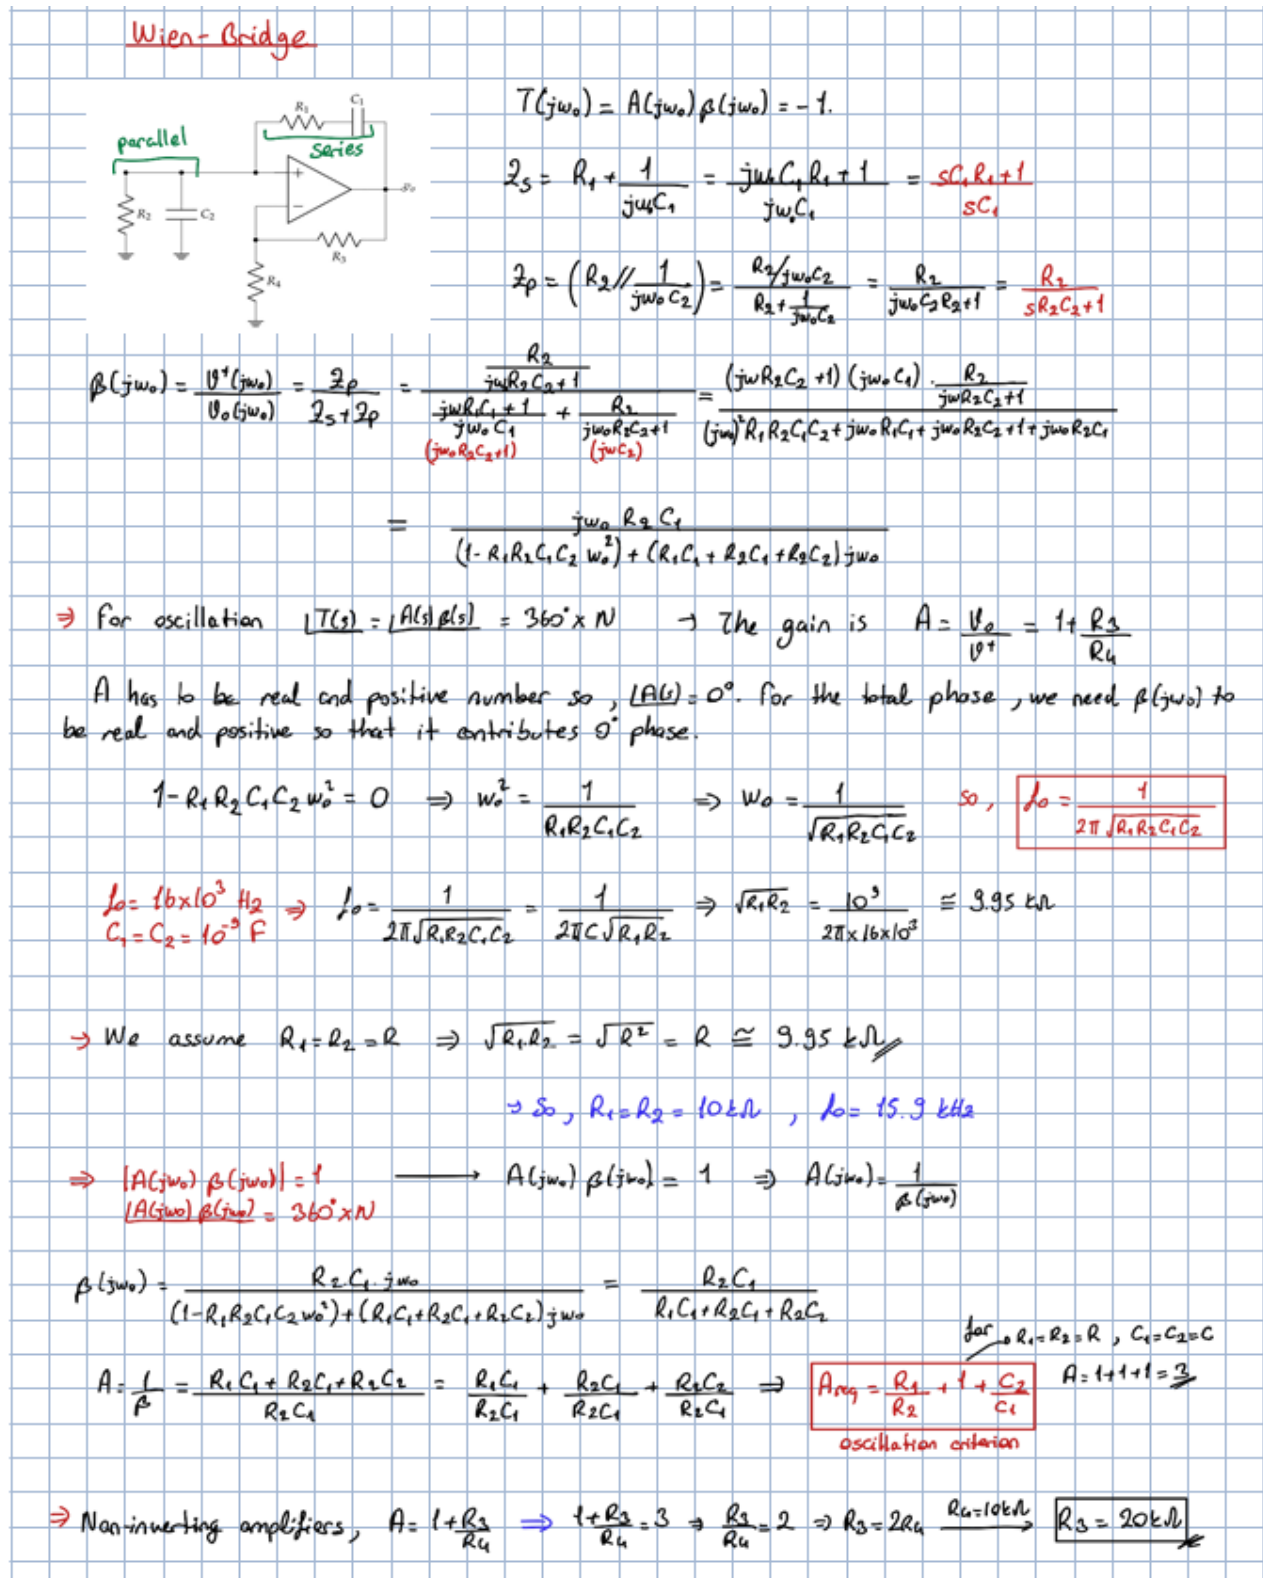 Wien-Bridge
T(jω₀) = A(jω₀) β(jω₀) = -1.
parallel
series
R₁
C₁
+
−
v₀
R₂
C₂
R₃
R₄
Zs = R₁ + 1/(jω₀C₁) = (jω₀C₁R₁ + 1)/(jω₀C₁) = (sC₁R₁+1)/(sC₁)
Zp = (R₂ // 1/(jω₀C₂)) = (R₂/jω₀C₂)/(R₂ + 1/(jω₀C₂)) = R₂/(jω₀C₂R₂+1) = R₂/(sR₂C₂+1)
β(jω₀) = V⁺(jω₀)/V₀(jω₀) = Zp/(Zs+Zp) = (R₂/(jωR₂C₂+1))/((jωR₁C₁+1)/(jω₀C₁) + R₂/(jω₀R₂C₂+1)) = ((jωR₂C₂+1)(jω₀C₁) · R₂/(jωR₂C₂+1))/((jω₀)²R₁R₂C₁C₂ + jω₀R₁C₁ + jω₀R₂C₂ + 1 + jω₀R₂C₁)
(jω₀R₂C₂+1) (jωC₂)
= (jω₀ R₂ C₁)/((1 - R₁R₂C₁C₂ ω₀²) + (R₁C₁ + R₂C₁ + R₂C₂) jω₀)
⇒ For oscillation ∠T(s) = ∠A(s) β(s) = 360° × N → The gain is A = V₀/V⁺ = 1 + R₃/R₄
A has to be real and positive number so, ∠A(s) = 0°. For the total phase, we need β(jω₀) to
be real and positive so that it contributes 0° phase.
1 - R₁R₂C₁C₂ω₀² = 0 ⇒ ω₀² = 1/(R₁R₂C₁C₂) ⇒ ω₀ = 1/√(R₁R₂C₁C₂) so, f₀ = 1/(2π√(R₁R₂C₁C₂))
f₀ = 16×10³ Hz
C₁ = C₂ = 10⁻⁹ F
⇒ f₀ = 1/(2π√(R₁R₂C₁C₂)) = 1/(2πC√(R₁R₂)) ⇒ √(R₁R₂) = 10⁹/(2π×16×10³) ≅ 9.95 kΩ
→ We assume R₁ = R₂ = R ⇒ √(R₁.R₂) = √(R²) = R ≅ 9.95 kΩ
→ So, R₁ = R₂ = 10kΩ , f₀ = 15.9 kHz
⇒ |A(jω₀) β(jω₀)| = 1 ⟶ A(jω₀) β(jω₀) = 1 ⇒ A(jω₀) = 1/β(jω₀)
∠A(jω₀) β(jω₀) = 360° × N
β(jω₀) = (R₂C₁.jω₀)/((1-R₁R₂C₁C₂ω₀²)+(R₁C₁+R₂C₁+R₂C₂)jω₀) = R₂C₁/(R₁C₁+R₂C₁+R₂C₂)
for R₁=R₂=R , C₁=C₂=C
A = 1/β = (R₁C₁+R₂C₁+R₂C₂)/(R₂C₁) = R₁C₁/R₂C₁ + R₂C₁/R₂C₁ + R₂C₂/R₂C₁ ⇒ Areq = R₁/R₂ + 1 + C₂/C₁ A = 1+1+1 = 3
oscillation criterion
⇒ Non-inverting amplifiers, A = 1 + R₃/R₄ ⇒ 1 + R₃/R₄ = 3 → R₃/R₄ = 2 ⇒ R₃ = 2R₄ R₄=10kΩ ⟶ R₃ = 20kΩ